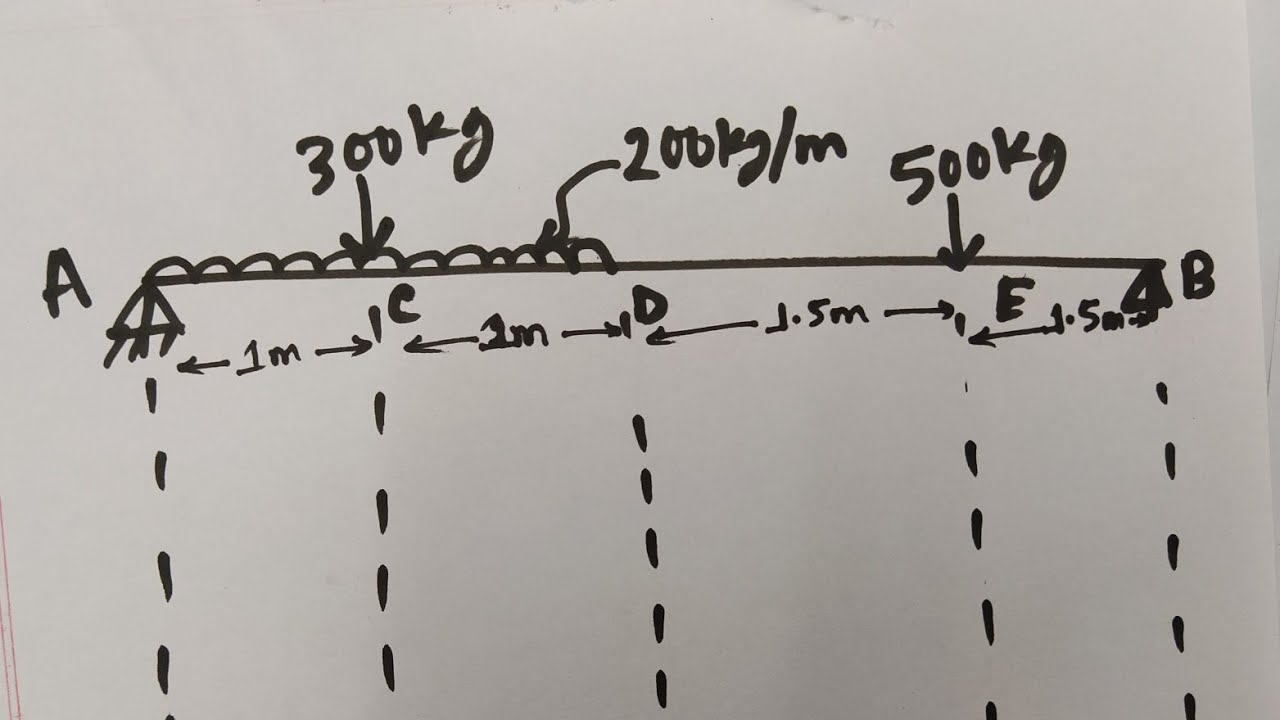 300kg
200kg/m
500kg
A
B
C
D
E
1m
1m
1.5m
1.5m